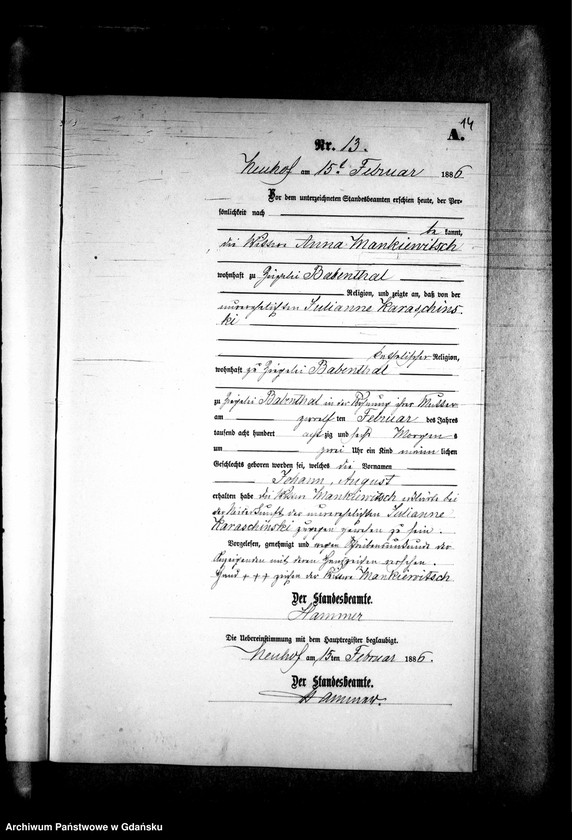 14
A.
Nr. 13.
Neuhof am 15t Februar 1886
Vor dem unterzeichneten Standesbeamten erschien heute, der Per-
sönlichkeit nach
be kannt,
die Anna Mankiewitsch
wohnhaft zu Ziegelei Babenthal
Religion, und zeigte an, daß von der
unverehelichten Julianne Karaschins-
ki
katholischer Religion,
wohnhaft zu Ziegelei Babenthal
zu Ziegelei Babenthal in der Wohnung ihrer Mutter
am zwölf ten Februar des Jahres
tausend acht hundert acht zig und sechs Morgens
um zwei Uhr ein Kind männ lichen
Geschlechts geboren worden sei, welches die Vornamen
Johann, August
erhalten habe die Mankiewitsch erklärte bei
der Niederkunft der unverehelichten Julianne
Karaschinski zugegen gewesen zu sein.
Vorgelesen, genehmigt und wegen Schreibensunkunde der
Anzeigenden mit deren Handzeichen versehen.
Hand + + + zeichen der Mankiewitsch
Der Standesbeamte.
Hammer
Die Uebereinstimmung mit dem Hauptregister beglaubigt.
Neuhof am 15ten Februar 1886.
Der Standesbeamte.
Hammer.
Archiwum Państwowe w Gdańsku